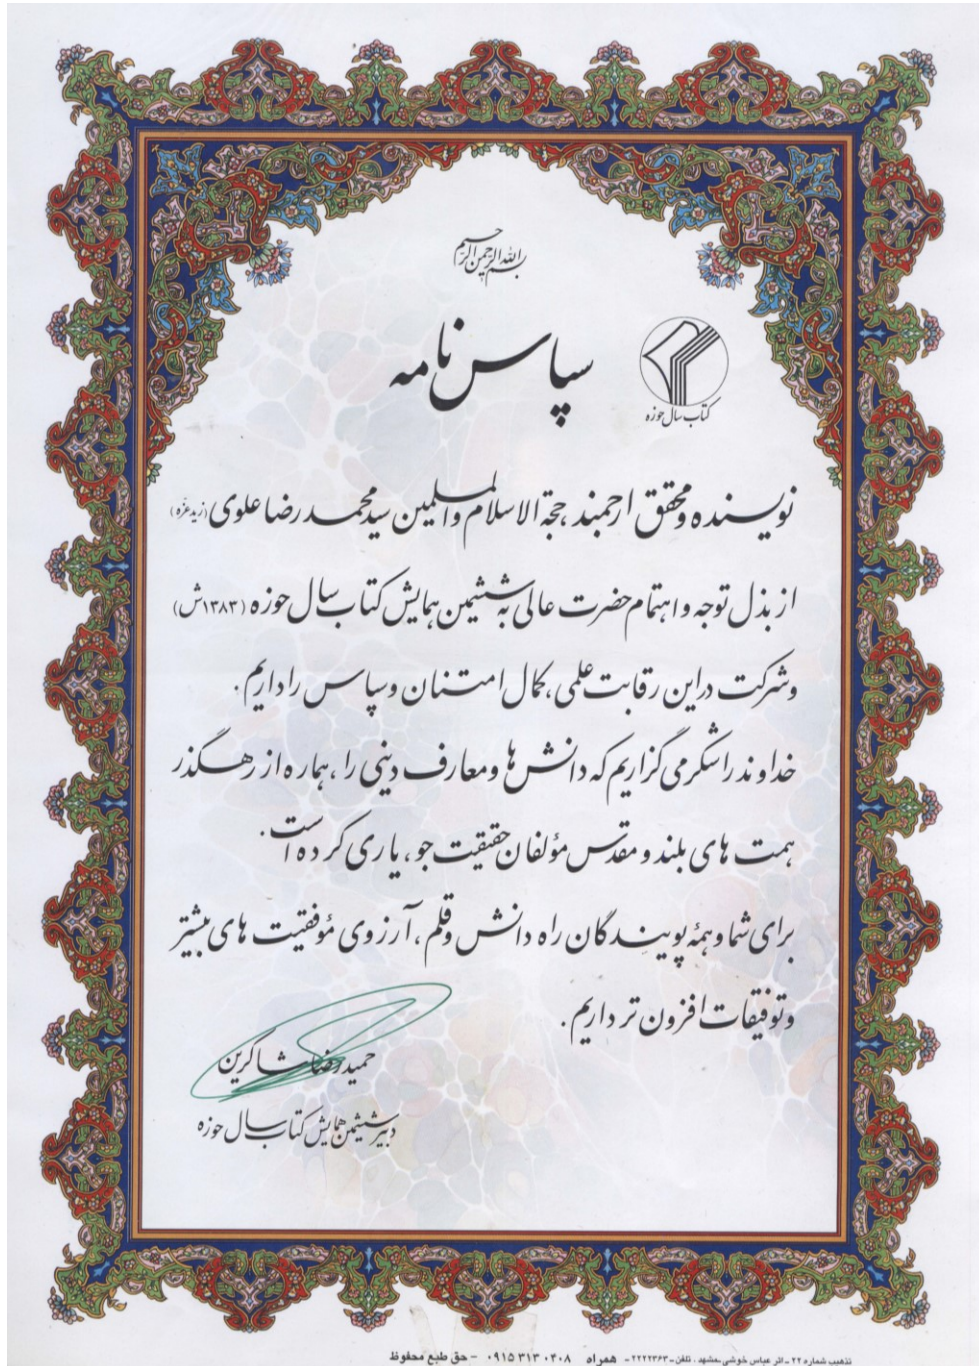 بسم الله الرحمن الرحیم
سپاس نامه
کتاب سال حوزه
نویسنده و محقق ارجمند، حجة الاسلام والمسلمین سید محمد رضا علوی (زید عزه)
از بذل توجه و اهتمام حضرت عالی به ششمین همایش کتاب سال حوزه (۱۳۸۳ش)
و شرکت در این رقابت علمی، کمال امتنان و سپاس را داریم.
خداوند را شکر می گزاریم که دانش ها و معارف دینی را، هماره از رهگذر
همت های بلند و مقدس مؤلفان حقیقت جو، یاری کرده است.
برای شما و همهٔ پویندگان راه دانش و قلم، آرزوی موفقیت های بیشتر
و توفیقات افزون تر داریم.
حمیدرضا شاکرین
دبیر ششمین همایش کتاب سال حوزه
تذهیب شماره ۲۲ - اثر عباس خوشی - مشهد . تلفن - ۲۲۲۲۳۶۳ - همراه ۰۹۱۵ ۳۱۳ ۰۴۰۸ - حق طبع محفوظ